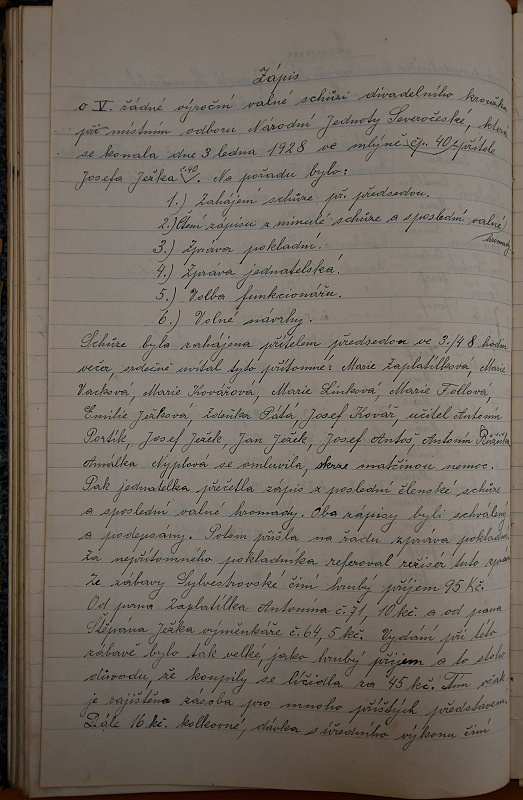 Zápis
o V. řádné výroční valné schůzi divadelního kroužku
při místním odboru Národní Jednoty Severočeské, která
se konala dne 3 ledna 1928 ve mlýně čp. 40 přítele
Josefa Ježka č. 40. Na pořadu bylo:
1.) Zahájení schůze př. předsedou.
2.) Čtení zápisu z minulé schůze a sposlední valné
hromady
3.) Zpráva pokladní.
4.) Zpráva jednatelská.
5.) Volba funkcionářů.
6.) Volné návrhy.
Schůze byla zahájena přítelem předsedou ve 3/4 8 hodin
večer, srdečně uvítal tyto přítomné: Marie Zaplatílková, Marie
Vacková, Marie Kovářová, Marie Linková, Marie Follová,
Emilie Ježková, Zdeňka Pátá, Josef Kovář, učitel Antonín
Portík, Josef Ježek, Jan Ježek, Josef Antoš, Antonín
Amálka Nyplová se omluvila, skrze matčinou nemoc.
Pak jednatelka přečetla zápis z poslední členské schůze
a sposlední valné hromady. Oba zápisy byli schváleny
a podepsány. Potom přišla na řadu zpráva pokladní
Za nepřítomného pokladníka referoval režisér tuto zprávu
Ze zábavy Sylvestrovské činí hrubý příjem 95 Kč.
Od pana Zaplatílka Antonína č. 31, 10 kč. a od pana
Štěpána Ježka výměnkáře č. 64, 5 kč. Vydání při této
zábavě bylo tak velké, jako hrubý příjem a to stoho
důvodu, že koupily se líčidla za 45 kč. Tím však
je zajištěna zásoba pro mnoho příštých představení.
Dále 16 kč. kolkovné, dávka s úředního výkonu činí